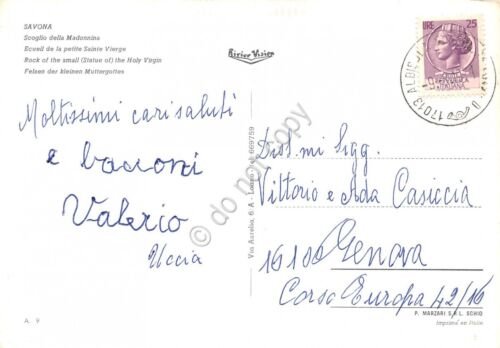 SAVONA
Scoglio della Madonnina
Ecueil de la petite Sainte Vierge
Rock of the small (Statue of) the Holy Virgin
Felsen der kleinen Muttergottes
River Vision
LIRE 25
ITALIANA
17013 ALBIS
Moltissimi cari saluti
e bacioni
Valerio
Uccia
Dist.mi Sigg.
Vittorio e Ada Casiccia
16100 Genova
Corso Europa 42/16
Via Aurelia, 6 A 669759
do not copy
A. 9
P. MARZARI S.R.L. SCHIO
Imprimé en Italie